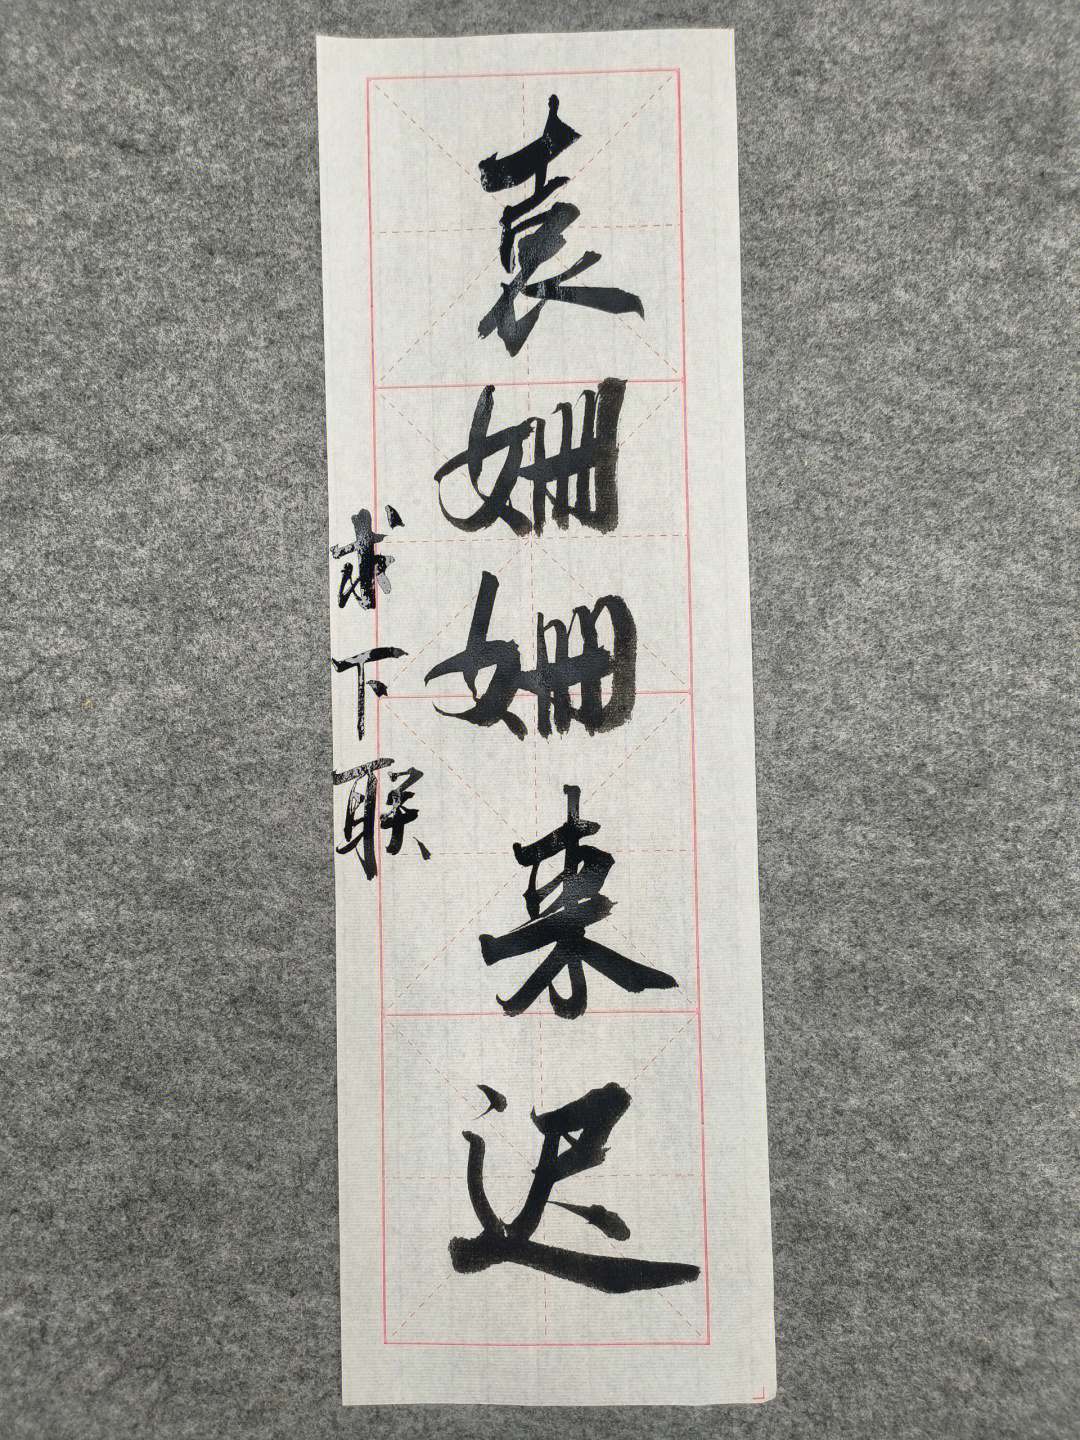 袁姗姗来迟
求下联